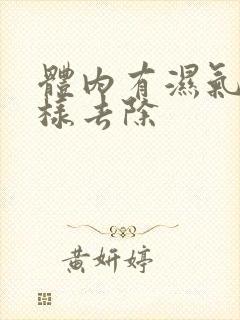 體內有濕氣
樣去除
黃妍婷